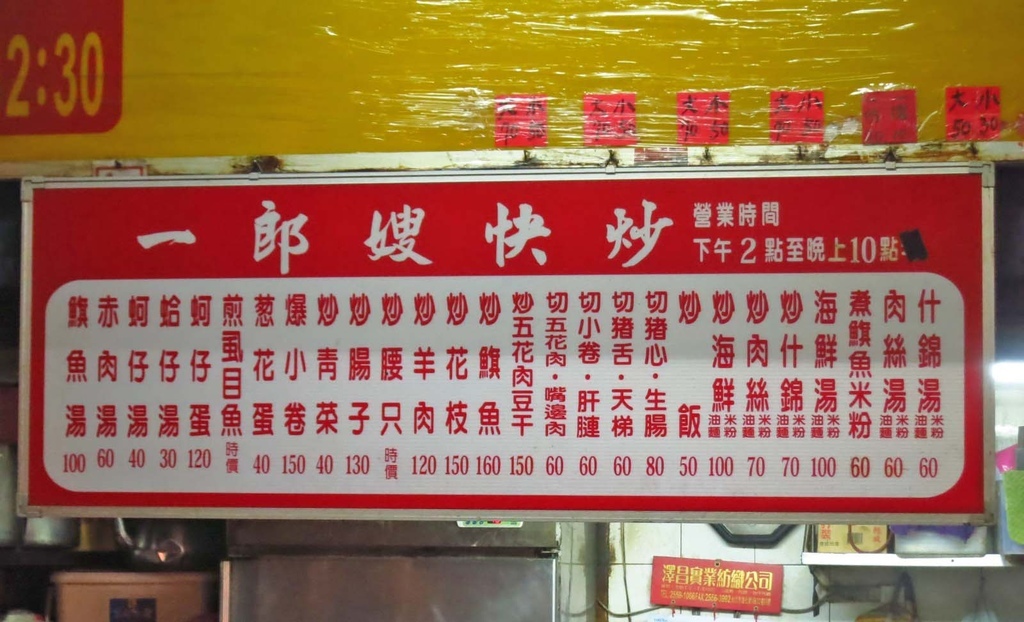 2:30
大小
50 30
一郎嫂快炒
營業時間
下午2點至晚上10點
什錦湯 米粉 油麵 60
肉絲湯 米粉 油麵 60
煮鱼旗魚米粉 60
海鮮湯 米粉 油麵 100
炒什錦 米粉 油麵 70
炒肉絲 米粉 油麵 70
炒海鮮 米粉 油麵 100
炒飯 50
切豬心・生腸 80
切猪舌・天梯 60
切小卷・肝腱 60
切五花肉・嘴邊肉 60
炒五花肉豆干 150
炒旗魚 160
炒花枝 150
炒羊肉 120
炒腰只 時價
炒腸子 130
炒青菜 40
爆小卷 150
葱花蛋 40
煎虱目魚 時價
蚵仔蛋 120
蛤仔湯 30
蚵仔湯 40
赤肉湯 60
旗魚湯 100
澤昌實業紡織公司